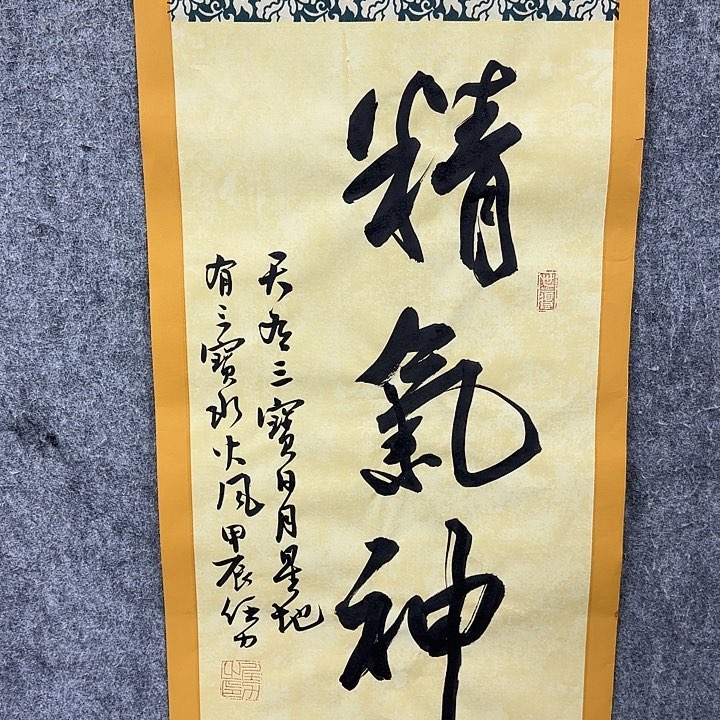 精氣神
天有三寶日月星地
有三寶水火風甲辰任力